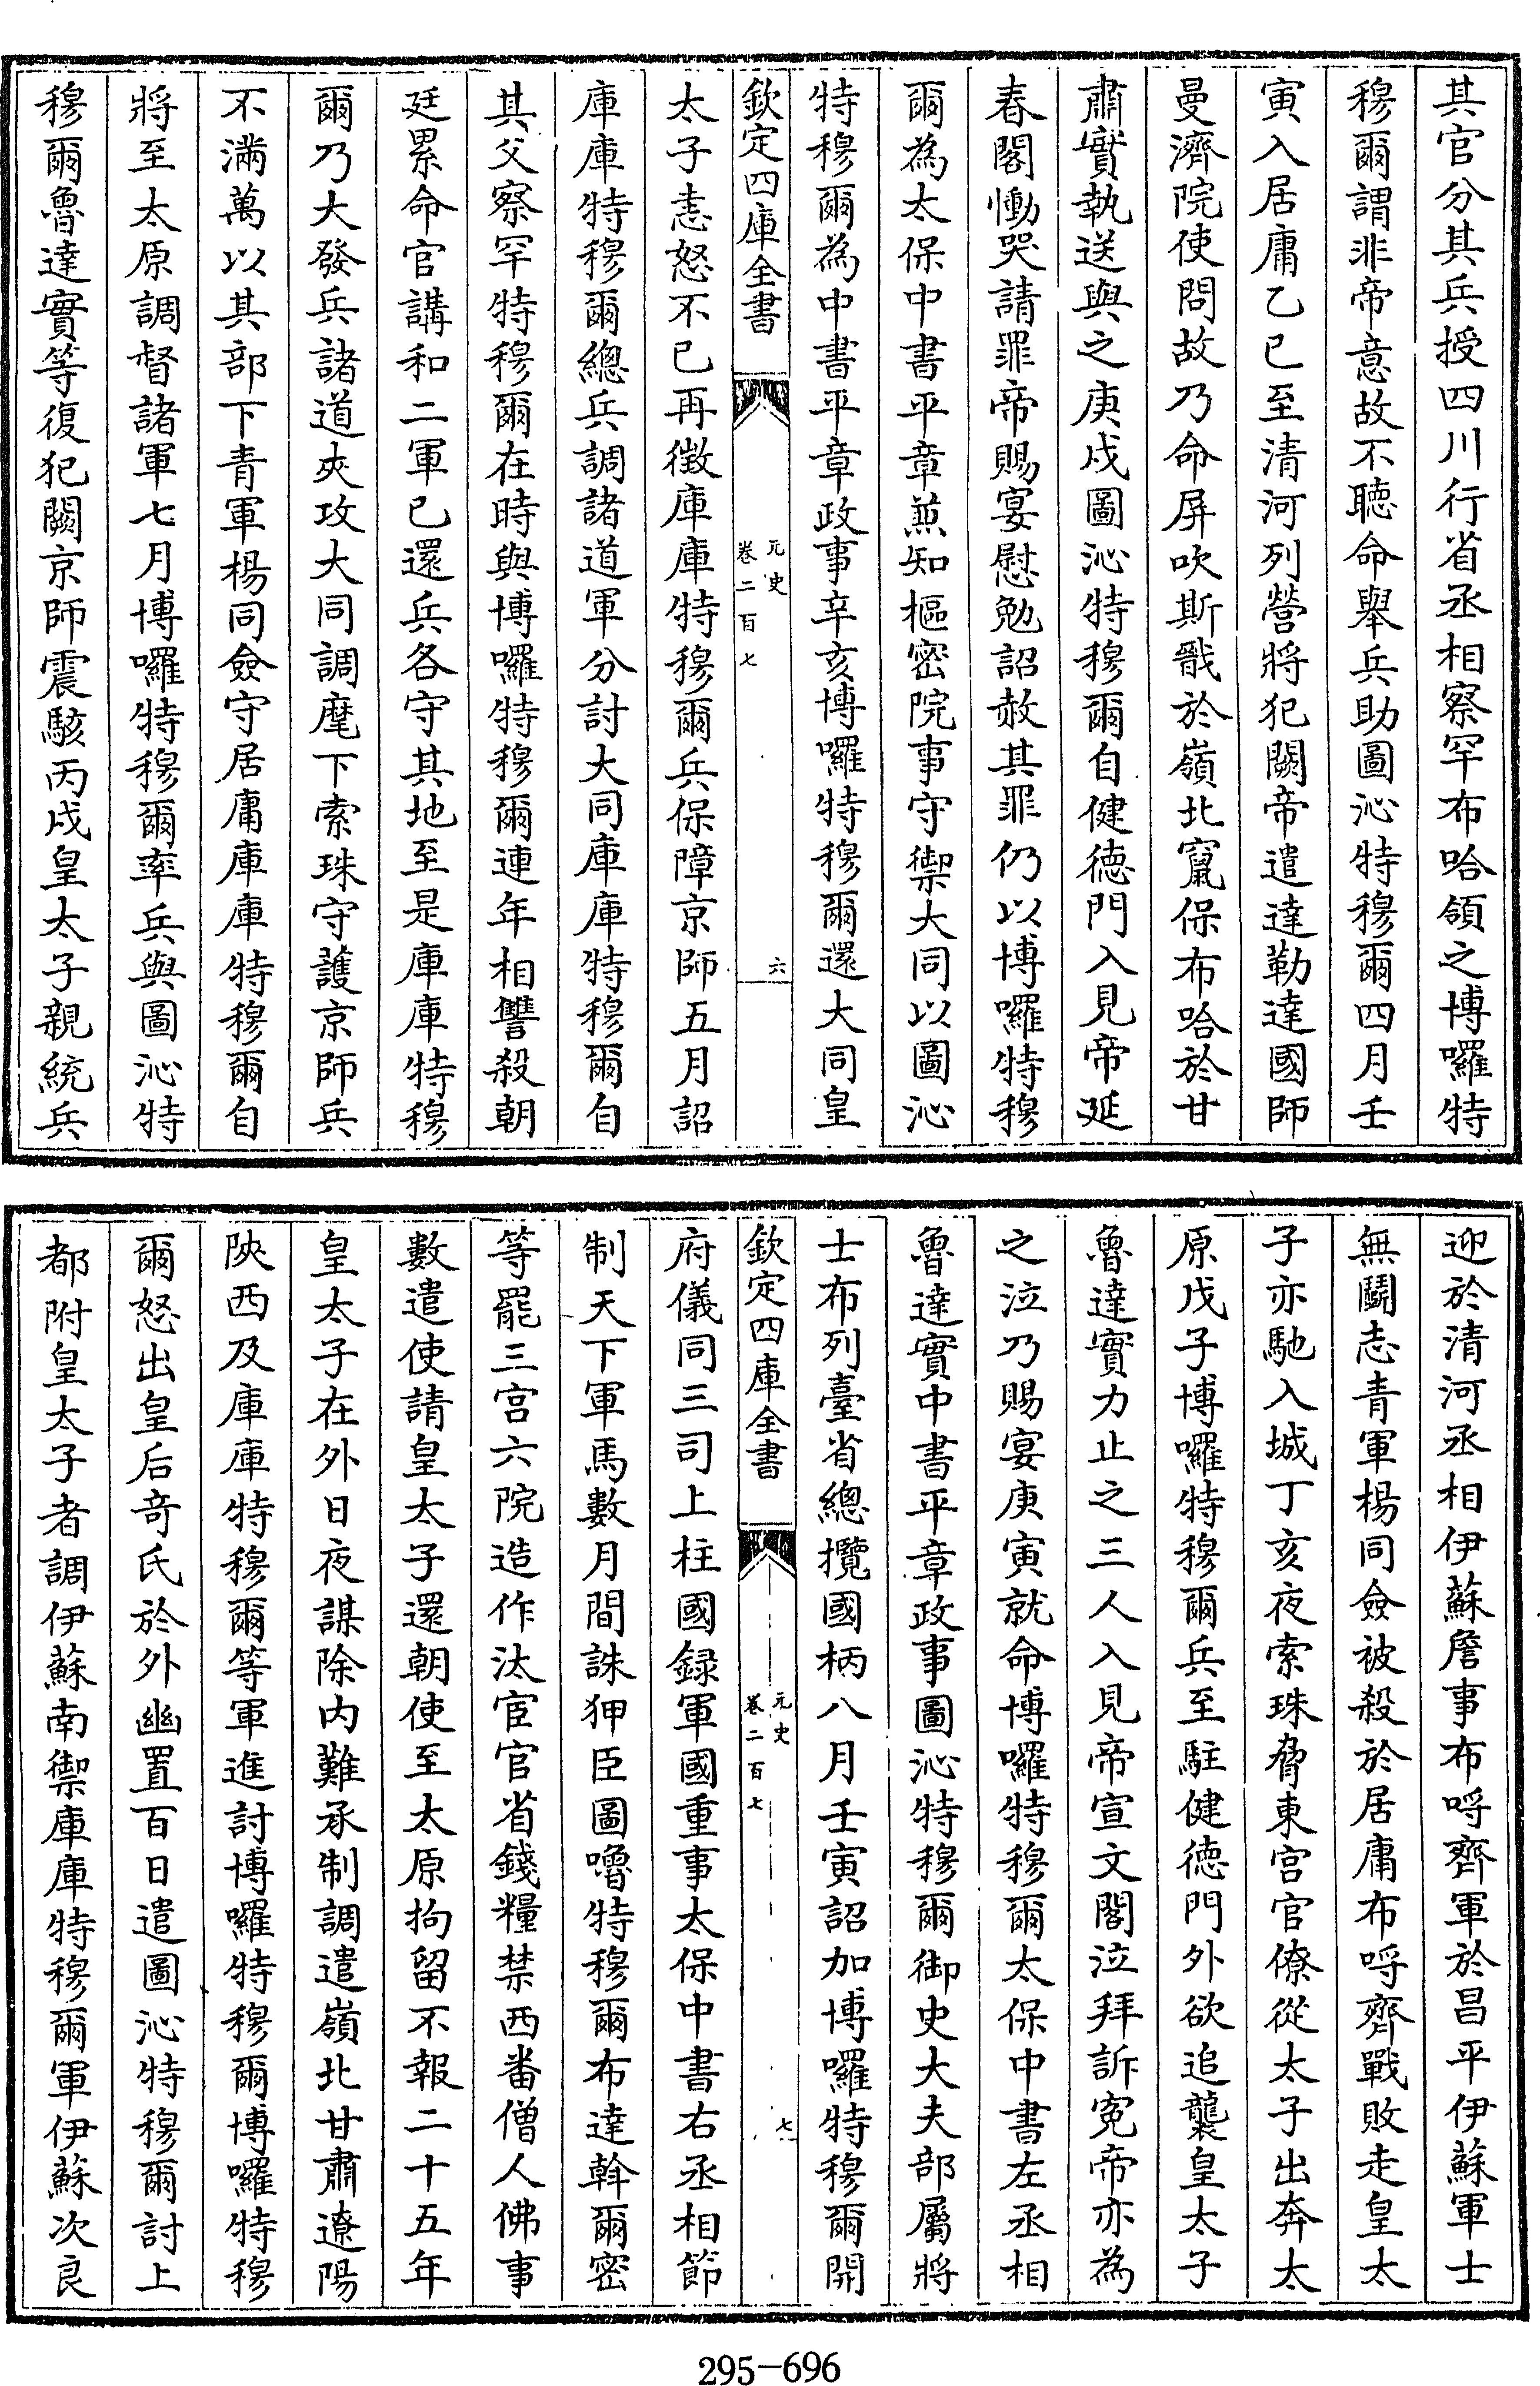 其官分其兵授四川行省丞相察罕布哈領之博囉特
穆爾謂非帝意故不聴命舉兵助圖沁特穆爾四月壬
寅入居庸乙巳至清河列營將犯闕帝遣達勒達國師
曼濟院使問故乃命屏吹斯戩於嶺北竄保布哈於甘
肅實執送與之庚戌圖沁特穆爾自健徳門入見帝延
春閣慟哭請罪帝賜宴慰勉詔赦其罪仍以博囉特穆
爾為太保中書平章兼知樞密院事守禦大同以圖沁
特穆爾為中書平章政事辛亥博囉特穆爾還大同皇
欽定四庫全書
元史
卷二百七
六
太子恚怒不已再徴庫庫特穆爾兵保障京師五月詔
庫庫特穆爾總兵調諸道軍分討大同庫庫特穆爾自
其父察罕特穆爾在時與博囉特穆爾連年相讐殺朝
廷累命官講和二軍已還兵各守其地至是庫庫特穆
爾乃大發兵諸道夾攻大同調麾下索珠守護京師兵
不滿萬以其部下青軍楊同僉守居庸庫庫特穆爾自
將至太原調督諸軍七月博囉特穆爾率兵與圖沁特
穆爾魯達實等復犯闕京師震駭丙戌皇太子親統兵
迎於清河丞相伊蘇詹事布哷齊軍於昌平伊蘇軍士
無鬭志青軍楊同僉被殺於居庸布哷齊戰敗走皇太
子亦馳入城丁亥夜索珠脅東宮官僚從太子出奔太
原戊子博囉特穆爾兵至駐健徳門外欲追襲皇太子
魯達實力止之三人入見帝宣文閣泣拜訴寃帝亦為
之泣乃賜宴庚寅就命博囉特穆爾太保中書左丞相
魯達實中書平章政事圖沁特穆爾御史大夫部屬將
士布列臺省總攬國柄八月壬寅詔加博囉特穆爾開
欽定四庫全書
元史
卷二百七
七
府儀同三司上柱國録軍國重事太保中書右丞相節
制天下軍馬數月間誅狎臣圖嚕特穆爾布達斡爾密
等罷三宮六院造作汰宦官省錢糧禁西番僧人佛事
數遣使請皇太子還朝使至太原拘留不報二十五年
皇太子在外日夜謀除内難承制調遣嶺北甘肅遼陽
陜西及庫庫特穆爾等軍進討博囉特穆爾博囉特穆
爾怒出皇后竒氏於外幽置百日遣圖沁特穆爾討上
都附皇太子者調伊蘇南禦庫庫特穆爾軍伊蘇次良
295-696